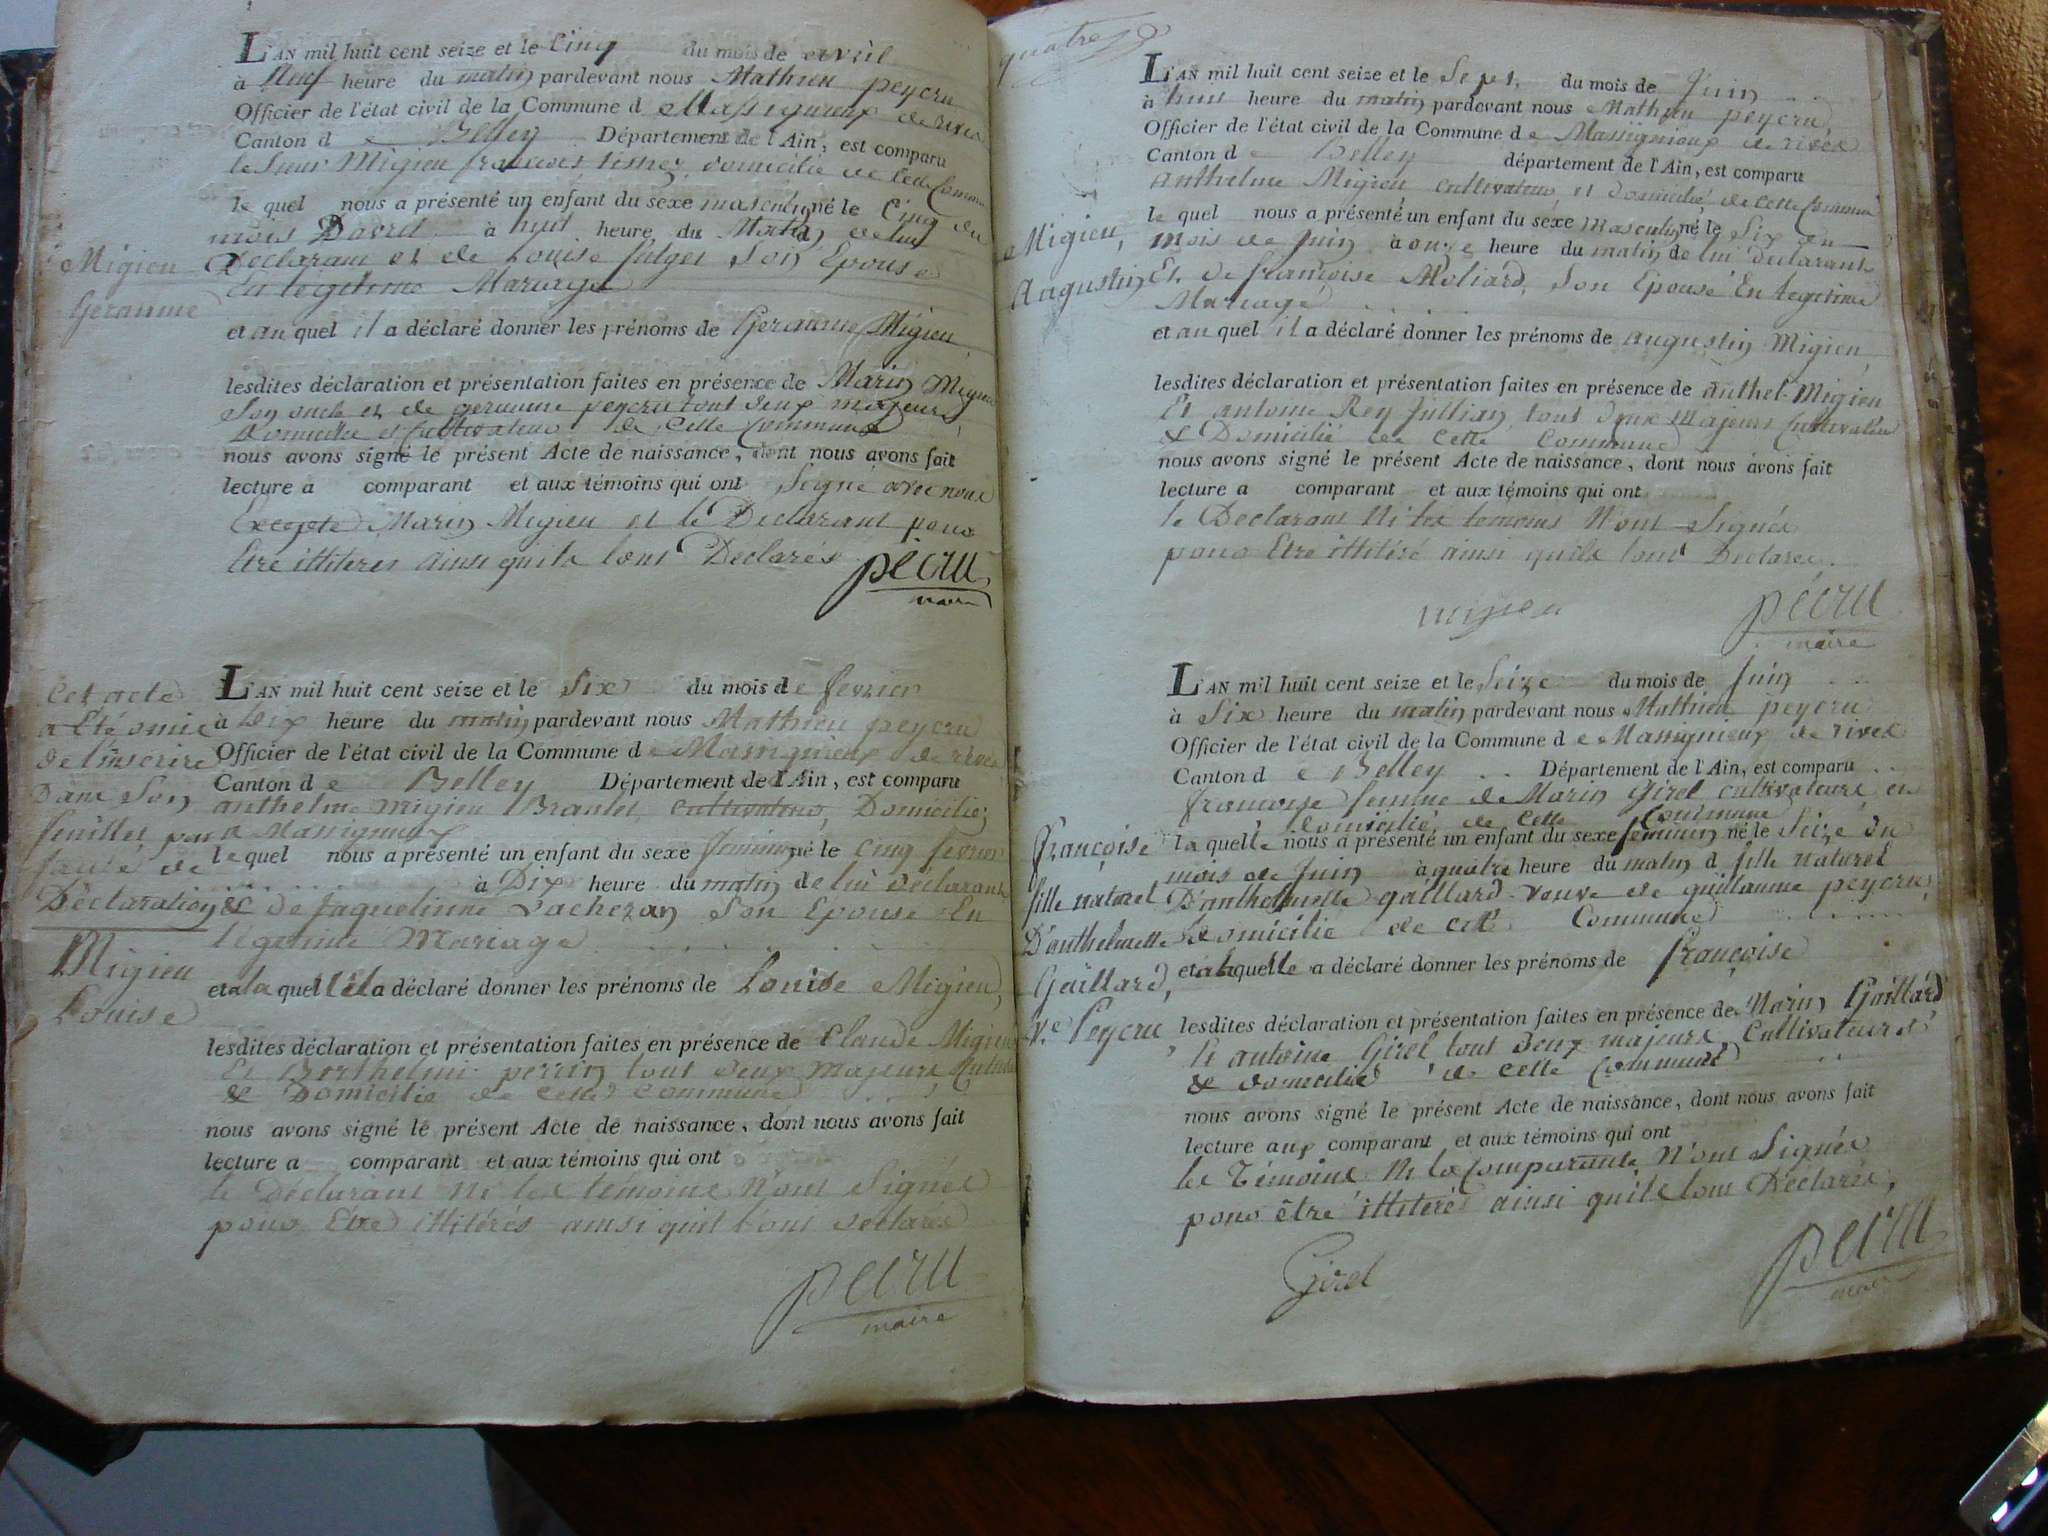 L'AN mil huit cent seize et le Cinq du mois de avril
à Neuf heure du matin pardevant nous Mathieu peycru
Officier de l'état civil de la Commune d e Massignieux de rives
Canton d e Belley Département de l'Ain, est comparu
le Sieur Migieu francois domicilié de cette Commune
le quel nous a présenté un enfant du sexe masculin né le Cinq du
mois Davril à huit heure du Matin de lui
Declarant et de Louise fulget Son Epouse
En legitime Mariage
Migieu
Geraume
et au quel il a déclaré donner les prénoms de Geraume Migieu
lesdites déclaration et présentation faites en présence de Marin Migieu
Son oncle et de geraume peycru tout deux majeurs
Domicilie et Cultivateur de cette Commune
nous avons signé le présent Acte de naissance, dont nous avons fait
lecture a comparant et aux témoins qui ont Signé avec nous
Excepté Marin Migieu et le Declarant pour
Etre illiteres ainsi quils lont Declarés
pécru
maire
Cet acte
a Eté omie
de linscrire
Dans Son
feuillet par
faute de
Déclaration
Migieu
Louise
L'AN mil huit cent seize et le Six du mois d e fevrier
à Dix heure du matin pardevant nous Mathieu peycru
Officier de l'état civil de la Commune d e Massignieux de rives
Canton d e Belley Département de l'Ain, est comparu
anthelme migieu Brantet, Cultivateur, Domicilié
a Massignieux
le quel nous a présenté un enfant du sexe feminin né le Cinq fevrier
à Dix heure du matin de lui déclarant
& de Jaquelinne Vachezan Son Epouse En
legitime Mariage
et a la quelle il a déclaré donner les prénoms de Louise Migieu,
lesdites déclaration et présentation faites en présence de Claude Migieu
Et Berthelmi perrin tout deux majeurs
& Domicilié de cette commune
nous avons signé le présent Acte de naissance, dont nous avons fait
lecture a comparant et aux témoins qui ont
le Déclarant Ni les témoins N'ont Signés
pour Etre illitérés ainsi quil l'ont declarés
pecru
maire
quatre
L'AN mil huit cent seize et le Sept du mois de Juin
à huit heure du matin pardevant nous Mathieu peycru
Officier de l'état civil de la Commune d e Massignieux de rives
Canton d e Belley département de l'Ain, est comparu
Anthelme Migieu Cultivateur et domicilié de cette Commune
le quel nous a présenté un enfant du sexe masculin né le Six du
mois de Juin à onze heure du matin de lui Declarant
Et de françoise Moliard, Son Epouse En legitime
Mariage
Migieu,
Augustin
et au quel il a déclaré donner les prénoms de augustin Migieu
lesdites déclaration et présentation faites en présence de anthel. Migieu
Et antoine Rey Jullian tout deux Majeurs Cultivateur
& Domicilié de cette Commune
nous avons signé le présent Acte de naissance, dont nous avons fait
lecture a comparant et aux témoins qui ont
le Declarant Ni les temoins N'ont Signés
pour Etre illitéré ainsi quils lont Declarée
migieu
pécru
maire
L'AN mil huit cent seize et le Seize du mois de Juin
à Six heure du matin pardevant nous Mathieu peycru
Officier de l'état civil de la Commune d e Massignieux de rives
Canton d e Belley Département de l'Ain, est comparu
françoise femme de Marin Girel cultivateurs et
domicilié de cette Commune
la quelle nous a présenté un enfant du sexe feminin né le Seize du
mois de Juin à quatre heure du matin d fille naturel
D'anthelmette gaillard veuve de guillaume peycru,
domicilié de cete Commune
françoise
fille naturel
D'anthelmette
Gaillard,
V.e Peycru,
et a laquelle a déclaré donner les prénoms de françoise
lesdites déclaration et présentation faites en présence de Marin Gaillard
Et antoine Girel tout deux majeurs, Cultivateur
& domicilié de cette Commune
nous avons signé le présent Acte de naissance, dont nous avons fait
lecture aux comparant et aux témoins qui ont
les Témoins Ni la Comparante N'ont Signés
pour être illitéré ainsi quils lont Déclarés,
Girel
pécru
maire